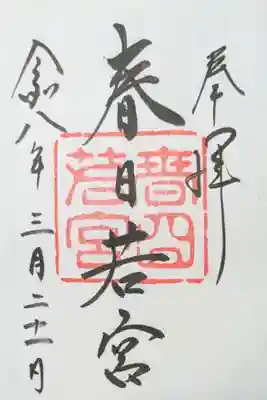 奉拝
春日若宮
春日
若宮
令八年三月二十一日